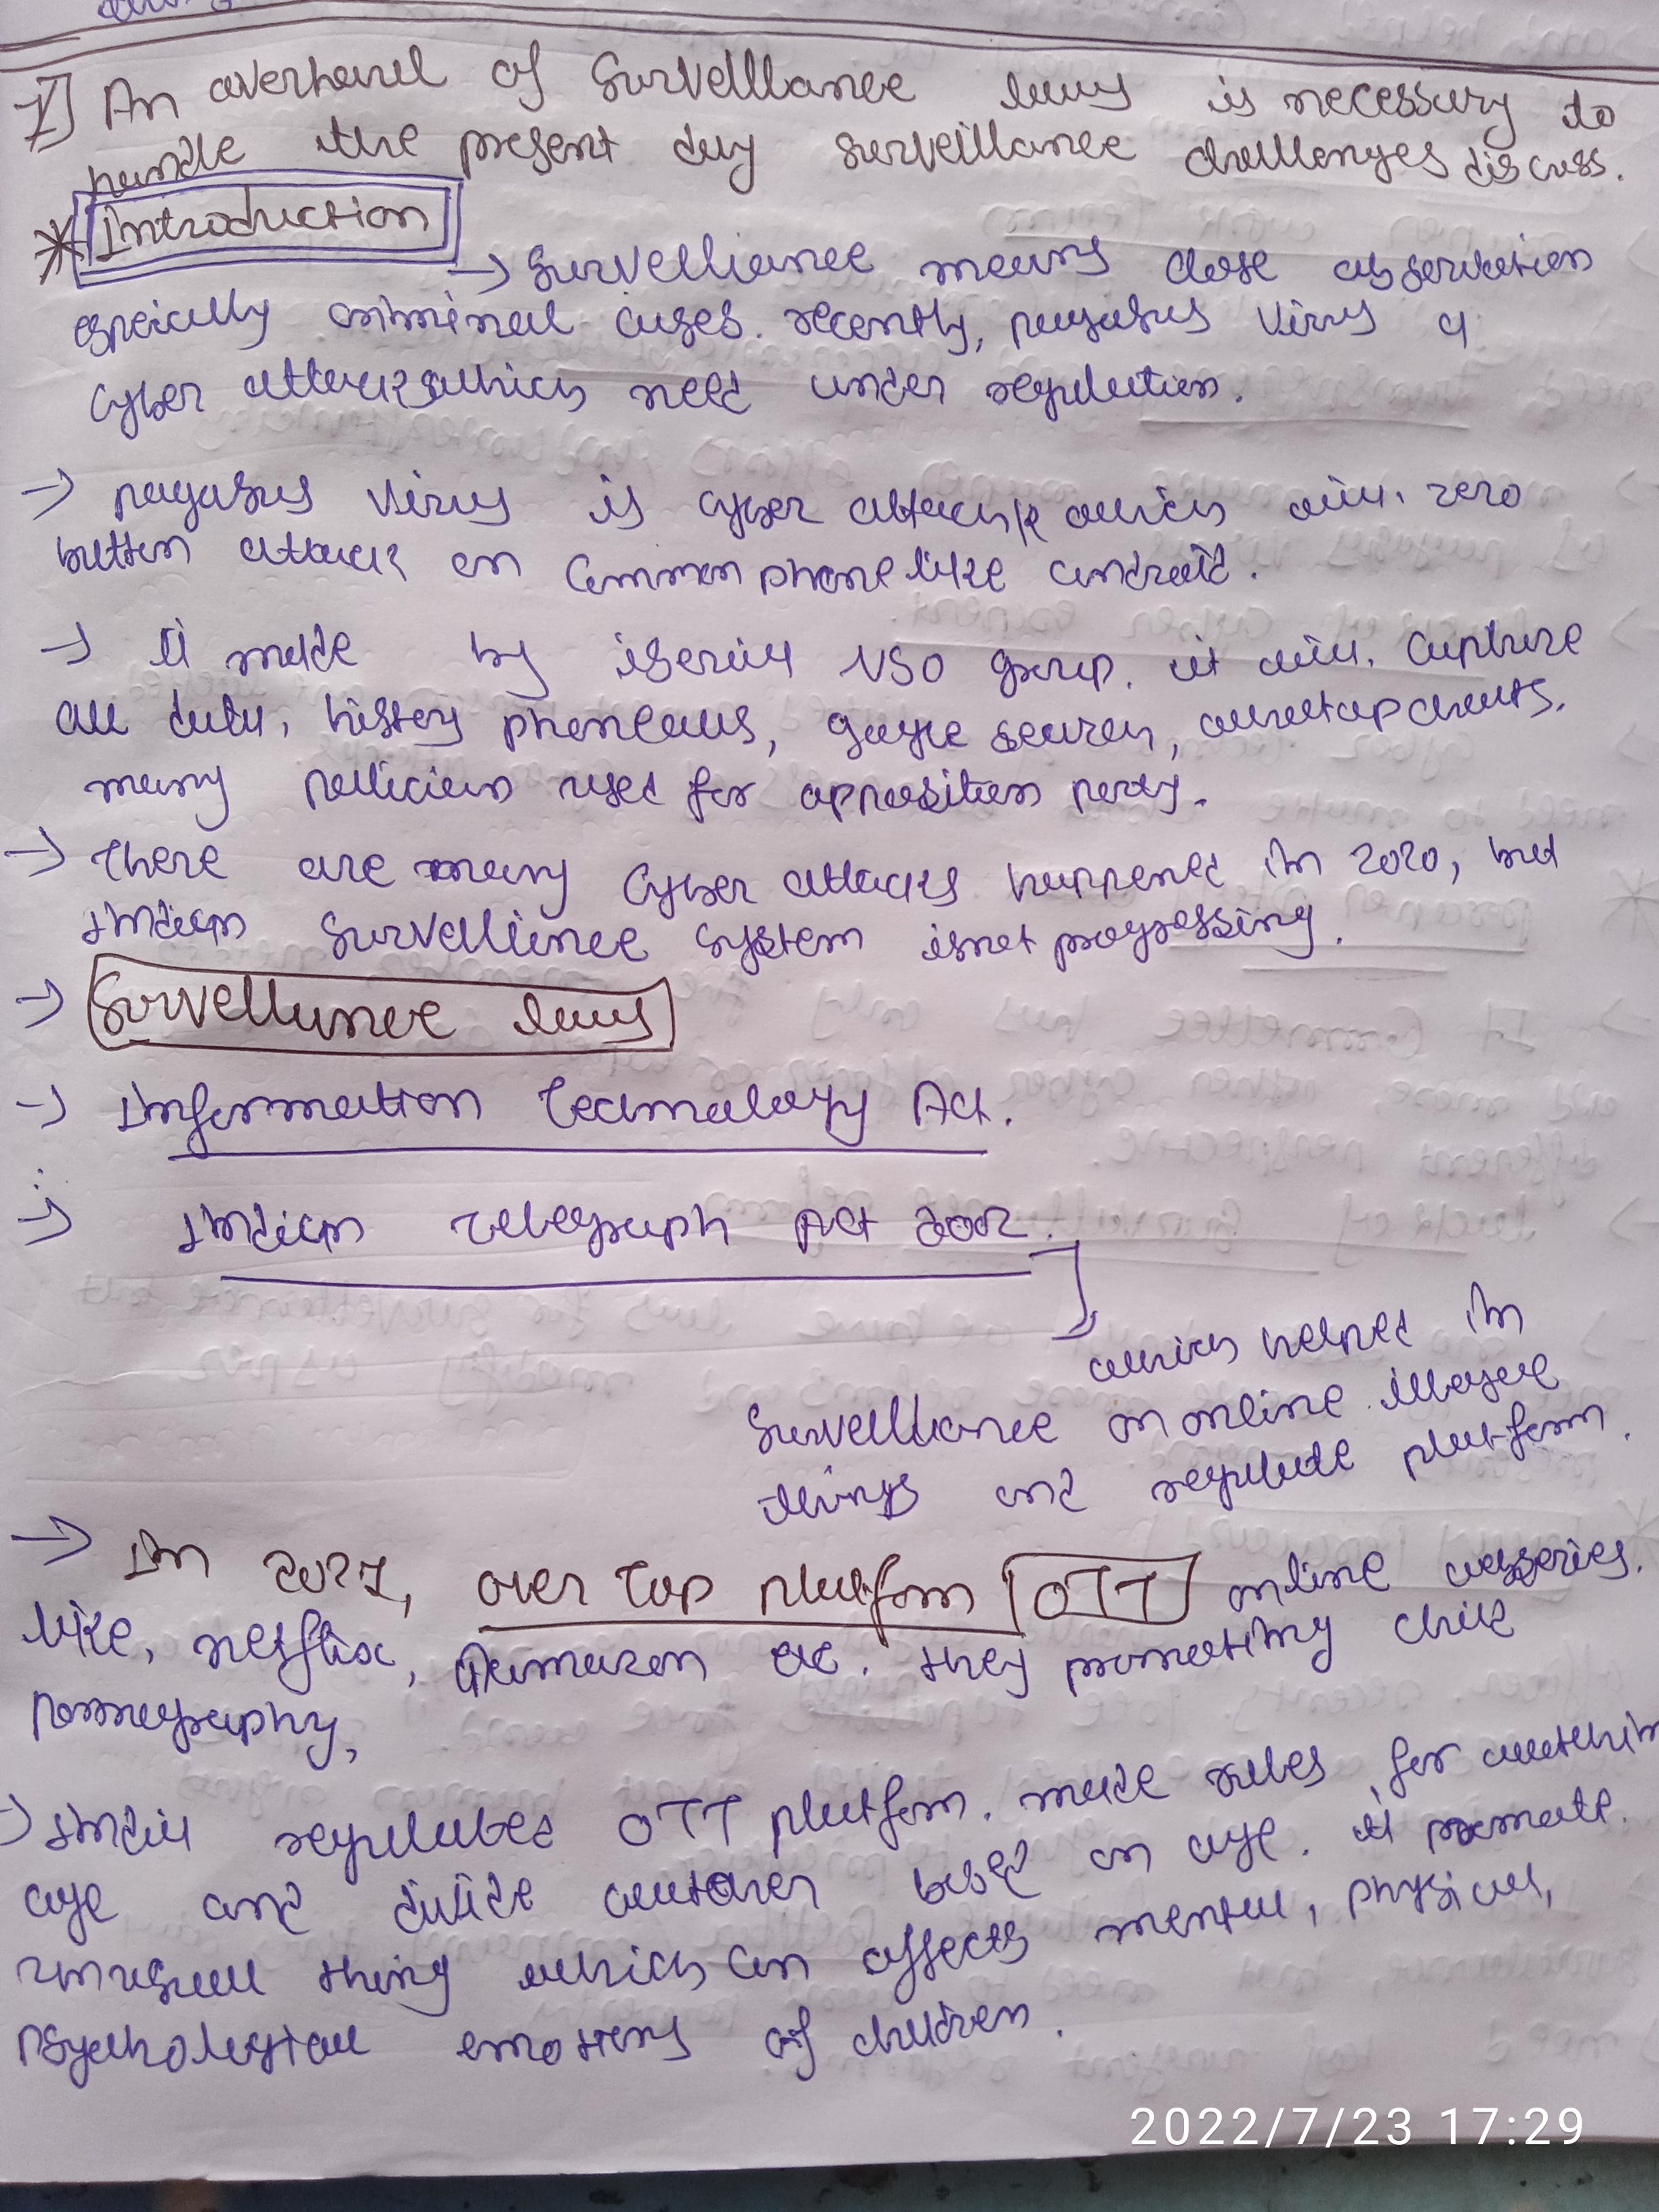 1) An overhaul of Surveillance laws is necessary to
handle the present day surveillance challenges discuss.
* Introduction
→ Survelliance means close observation
espicially criminal cases. recently, pegasus virus a
cyber attacks which need under regulation.
→ pegasus virus is cyber attack which aim. zero
button attack on Common phone like android.
→ It made by iseria NSO group. it aim. Capture
all data, history phone calls, google search, whatsap chats.
many pollicien used for opposition party.
→ There are many Cyber attacks happened in 2020, but
Indian Survellience system is not progressing.
→ Survellance laws
→ Information Technology Act.
→ Indian Telegraph Act 2002.
which helped in
Survelliance on online illegal
things and regulate platform.
→ In 2021, over Top platform OTT online webseries.
like, netflix, Aamazon etc. they promoting child
pornography,
→ India regulates OTT platform. made rules for watching
age and divide based on age. it promote.
unusual thing which can affects mental, physical,
psychological emotions of children.
2022/7/23 17:29